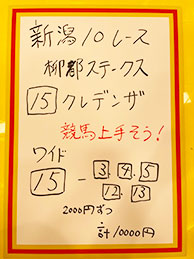 新潟10レース
柳都ステークス
15 クレデンザ
競馬上手そう!
ワイド
15 - 3.4.5
12.13
2000円ずつ
計10000円